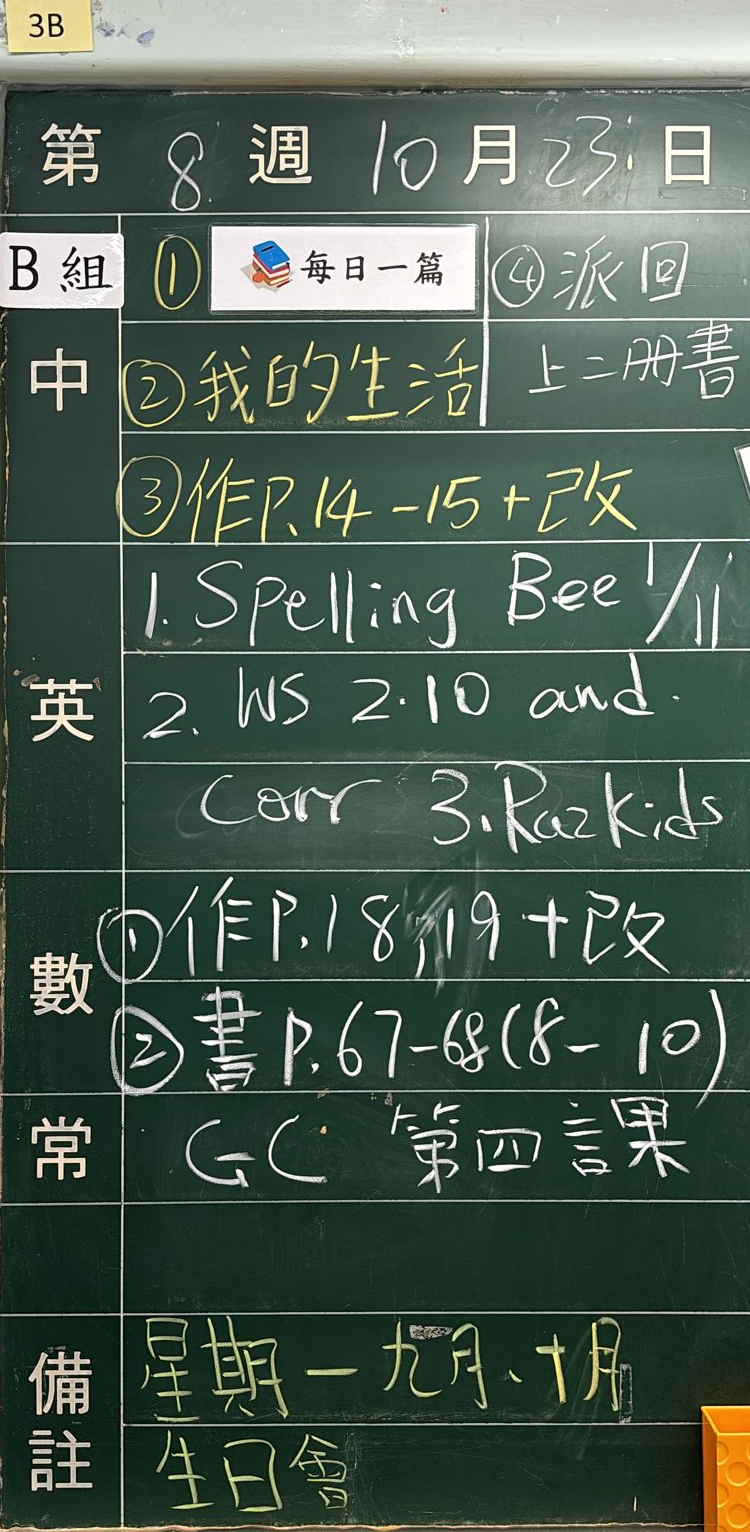 3B
第 8 週 10 月 23 日
B 組
① 每日一篇
④派回
上二冊書
中
②我的生活
③作P.14-15+改
英
1. Spelling Bee 1/11
2. WS 2.10 and
Corr 3. RazKids
數
①作P.18,19+改
②書P.67-68(8-10)
常
GC 第四課
備註
星期一九月、十月
生日會